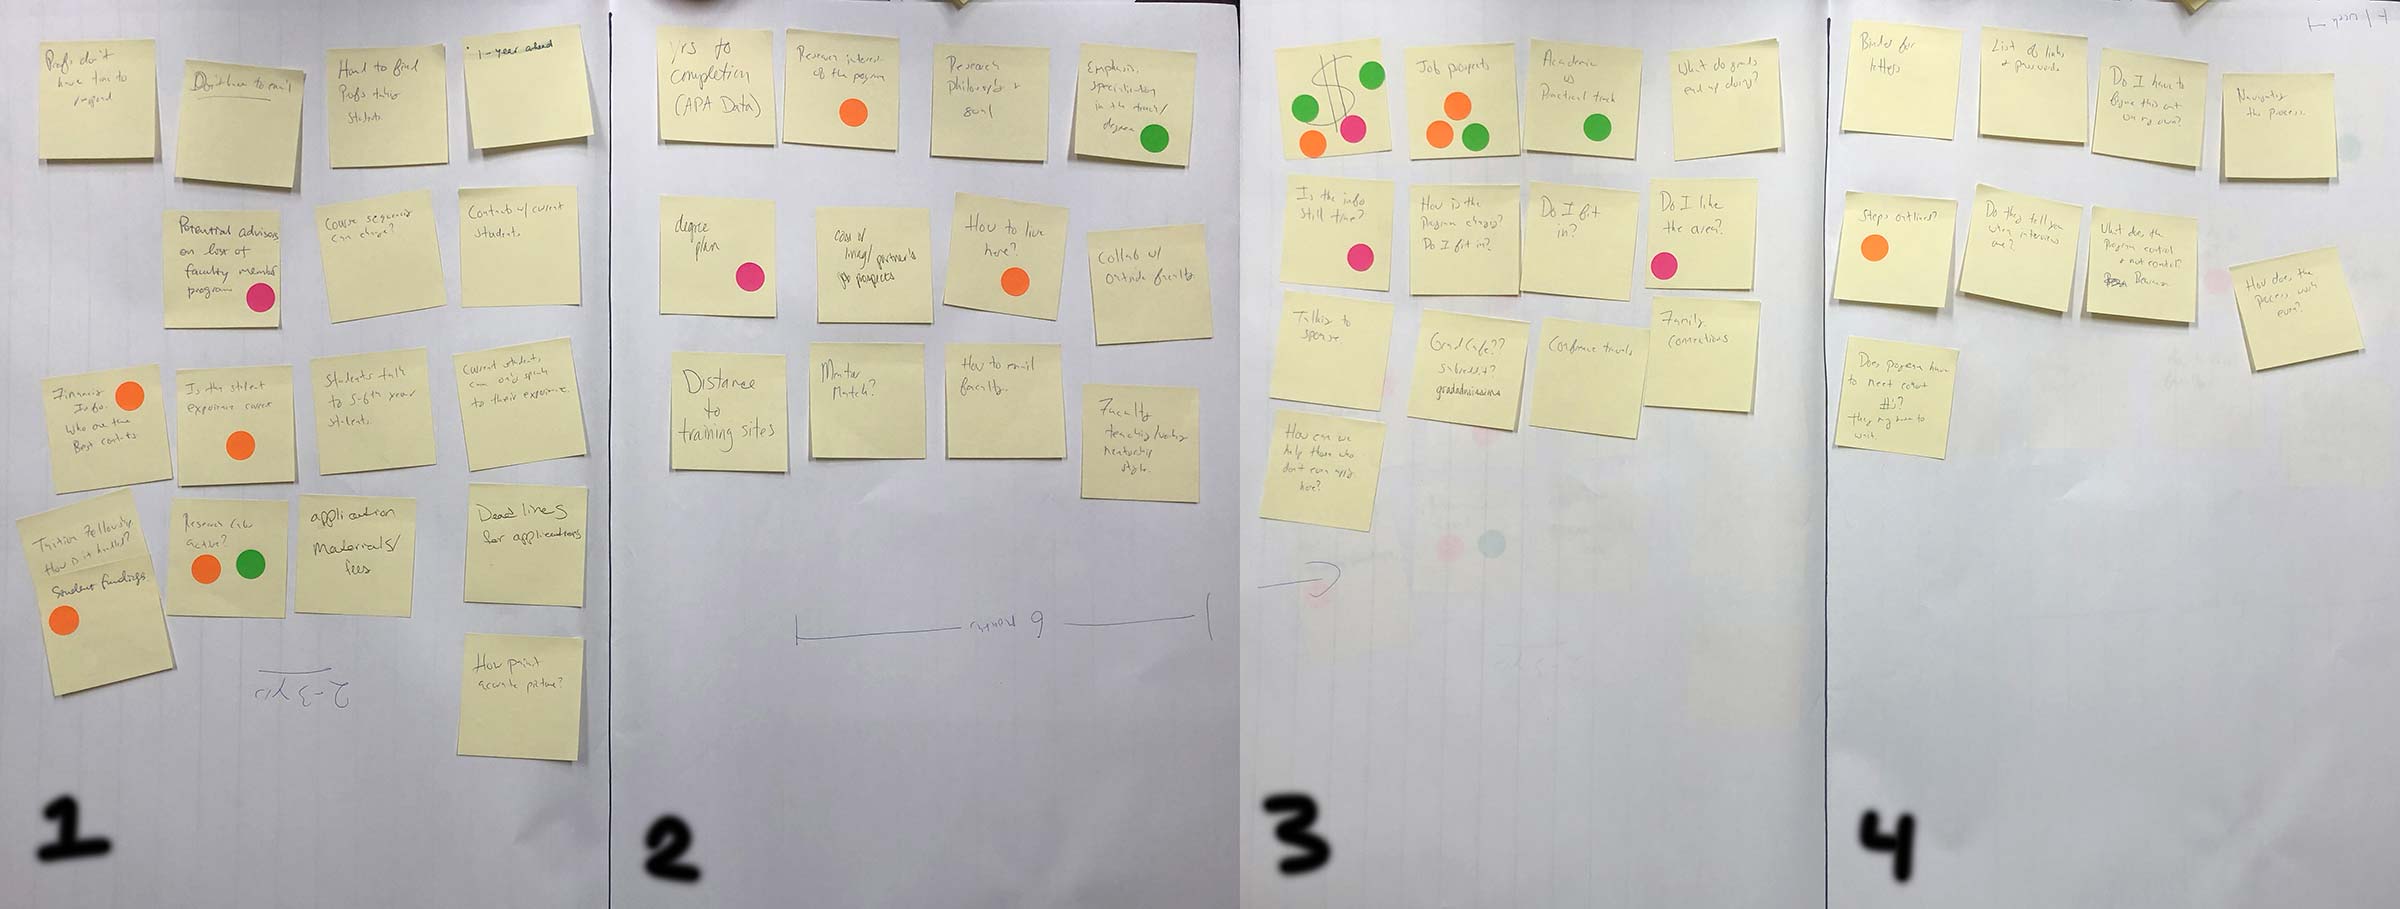 Profs don't
have time to
respond
Don't have to email
Hard to find
Profs taking
students
1-year ahead
Potential advisors
on list of
faculty member
program
Course sequence
can change?
Contacts w/ current
students
Financial
Info.
Who are the
Best contacts
Is the student
experience correct
Students talk
to 5-6th year
students.
Current students
can only speak
to their experience.
Tuition Fellowship
How is it handled?
Student fundings
Research Labs
active?
application
Materials/
fees
Deadlines
for applications
How paint
accurate picture?
2-3 yrs
1
yrs to
completion
(APA Data)
Research interest
of the program
Research
philosophy +
goal
Emphasis,
specialization
in the track/
degree
degree
plan
cost of
living/partner's
job prospects
How to live
here?
Collab w/
outside faculty
Distance
to
training sites
Mentor
Match?
How to email
faculty.
Faculty
teaching/
mentorship
style.
6 months
2
$
Job prospects
Academic
vs
Practical track
What do grads
end up doing?
Is the info
still true?
How is the
Program changing?
Do I fit in?
Do I fit
in?
Do I like
the area?
Talking to
spouse
GradCafe??
Subreddit?
gradadmissions
Conference travels
Family
connections
How can we
help those who
don't even apply
here?
3
Binder for
letters
List of links
+ passwords
Do I have to
figure this out
on my own?
Navigating
the process.
Steps outlined?
Do they tell you
when interviews
are?
What does the
Program control
+ not control?
How does the
process work
even?
Does program have
to meet cohort
#s?
They may have to
wait.
4